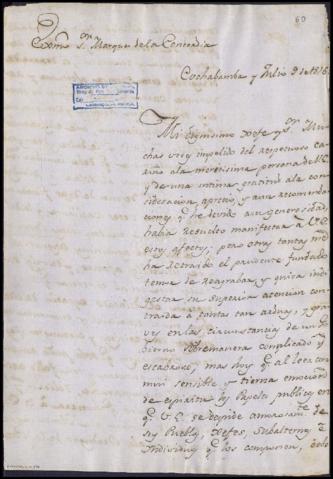 60
Exmo Sr. Marques de la Concordia
Cochabamba y Julio 9 de 1816
Mi dignisimo Xefe y Sr. Mu
chas veces impelido del respetuoso ca
riño a la meritisima persona de V.E.
y de una intima gratitud a la con
sideracion, aprecio, y aun recomenda
ciones q.e he devido a su generosidad,
habia resuelto manifestar a V.E.
estos afectos; pero otras tantas me
ha retraido el prudente fundado
temor de desagradar, y quiza
su superior atencion con
traida a tantas tan arduas, y gra
ves en las circunstancias de un Go
bierno sobremanera complicado y
escabroso; mas hoy q.e al leer con
mui sensible y tierna emocion
de espiritu los Papeles publicos en
q.e V.E. se despide amorosam.te de
sus Pueblos, Xefes, Subalternos e
Individuos q.e los componen, debo